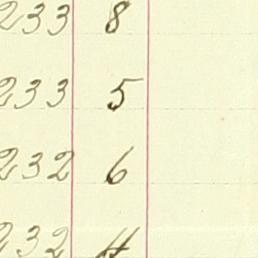 233 8
233 5
232 6
232